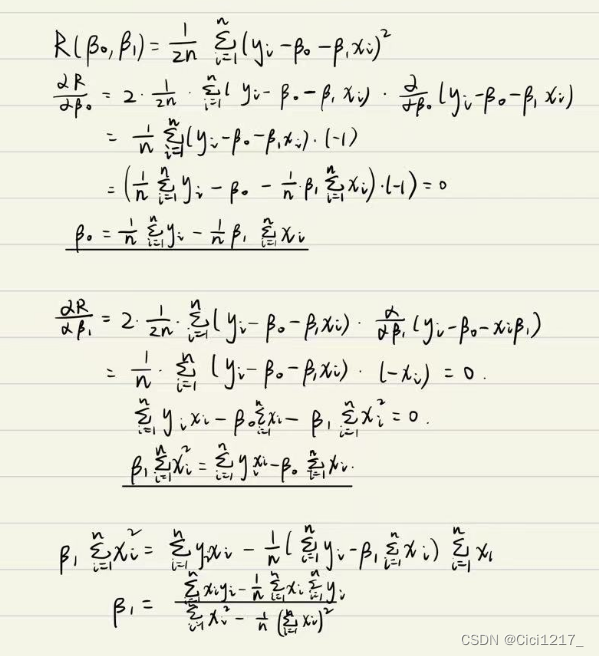 R(β₀,β₁) = 1/2n Σ_{i=1}^{n} (yᵢ-β₀-β₁xᵢ)²
αR/αβ₀ = 2· 1/2n · Σ_{i=1}^{n} ( yᵢ-β₀-β₁xᵢ) · α/αβ₀ (yᵢ-β₀-β₁xᵢ)
= 1/n Σ_{i=1}^{n} (yᵢ-β₀-β₁xᵢ)·(-1)
= (1/n Σ_{i=1}^{n} yᵢ - β₀ - 1/n·β₁ Σ_{i=1}^{n} xᵢ)·(-1) = 0
β₀ = 1/n Σ_{i=1}^{n} yᵢ - 1/n β₁ Σ_{i=1}^{n} xᵢ
αR/αβ₁ = 2· 1/2n · Σ_{i=1}^{n} ( yᵢ-β₀-β₁xᵢ) · α/αβ₁ (yᵢ-β₀-xᵢβ₁)
= 1/n · Σ_{i=1}^{n} (yᵢ-β₀-β₁xᵢ) · (-xᵢ) = 0 .
Σ_{i=1}^{n} yᵢxᵢ - β₀Σ_{i=1}^{n} xᵢ - β₁ Σ_{i=1}^{n} xᵢ² = 0 .
β₁ Σ_{i=1}^{n} xᵢ² = Σ_{i=1}^{n} yᵢxᵢ - β₀ Σ_{i=1}^{n} xᵢ.
β₁ Σ_{i=1}^{n} xᵢ² = Σ_{i=1}^{n} yᵢxᵢ - 1/n ( Σ_{i=1}^{n} yᵢ - β₁ Σ_{i=1}^{n} xᵢ) Σ_{i=1}^{n} xᵢ
β₁ = (Σ_{i=1}^{n} xᵢyᵢ - 1/n Σ_{i=1}^{n} xᵢ Σ_{i=1}^{n} yᵢ) / (Σ_{i=1}^{n} xᵢ² - 1/n (Σ_{i=1}^{n} xᵢ)²)
CSDN @Cici1217_